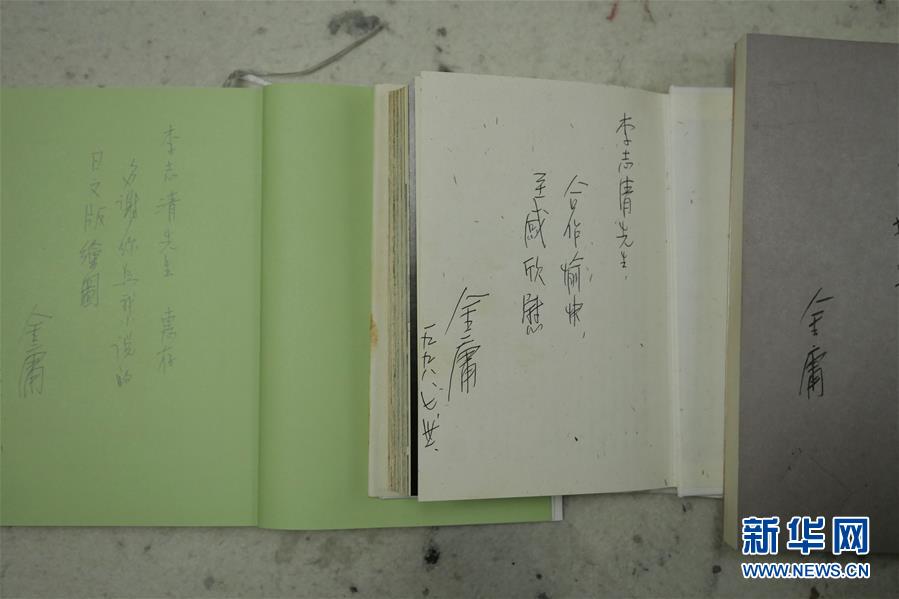 李志清先生 惠存
多謝你 我 说的
日文版繪圖
金庸
李志清先生,
合作愉快,
至感欣慰
金庸
一九九八、七、
金庸
新华网
WWW.NEWS.CN